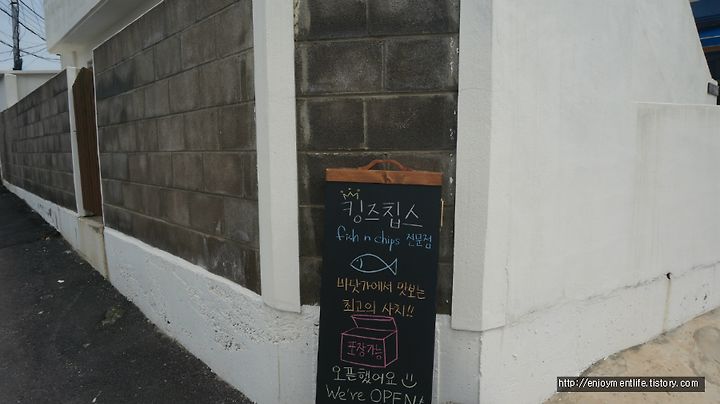 킹즈칩스
fish n chips 전문점
바닷가에서 맛보는
최고의 사치!!
포장가능
오픈했어요
We're OPEN!
http://enjoymentlife.tistory.com